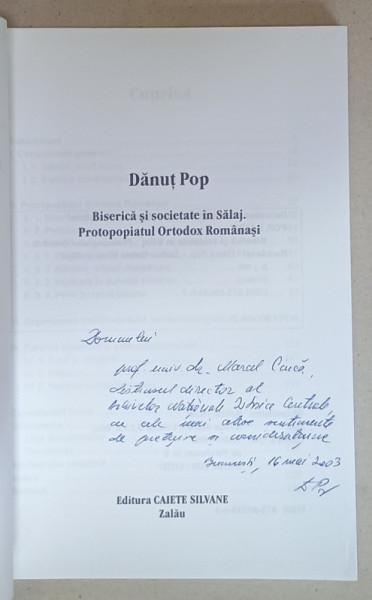 Dănuț Pop
Biserică și societate în Sălaj.
Protopopiatul Ortodox Românași
Domnului
prof. univ. dr. Marcel Ciucă,
distinsul director al
Arhivelor Naționale Istorice Centrale,
cu cele mai alese sentimente
de prețuire și considerațiune
București, 16 mai 2003
Editura CAIETE SILVANE
Zalău